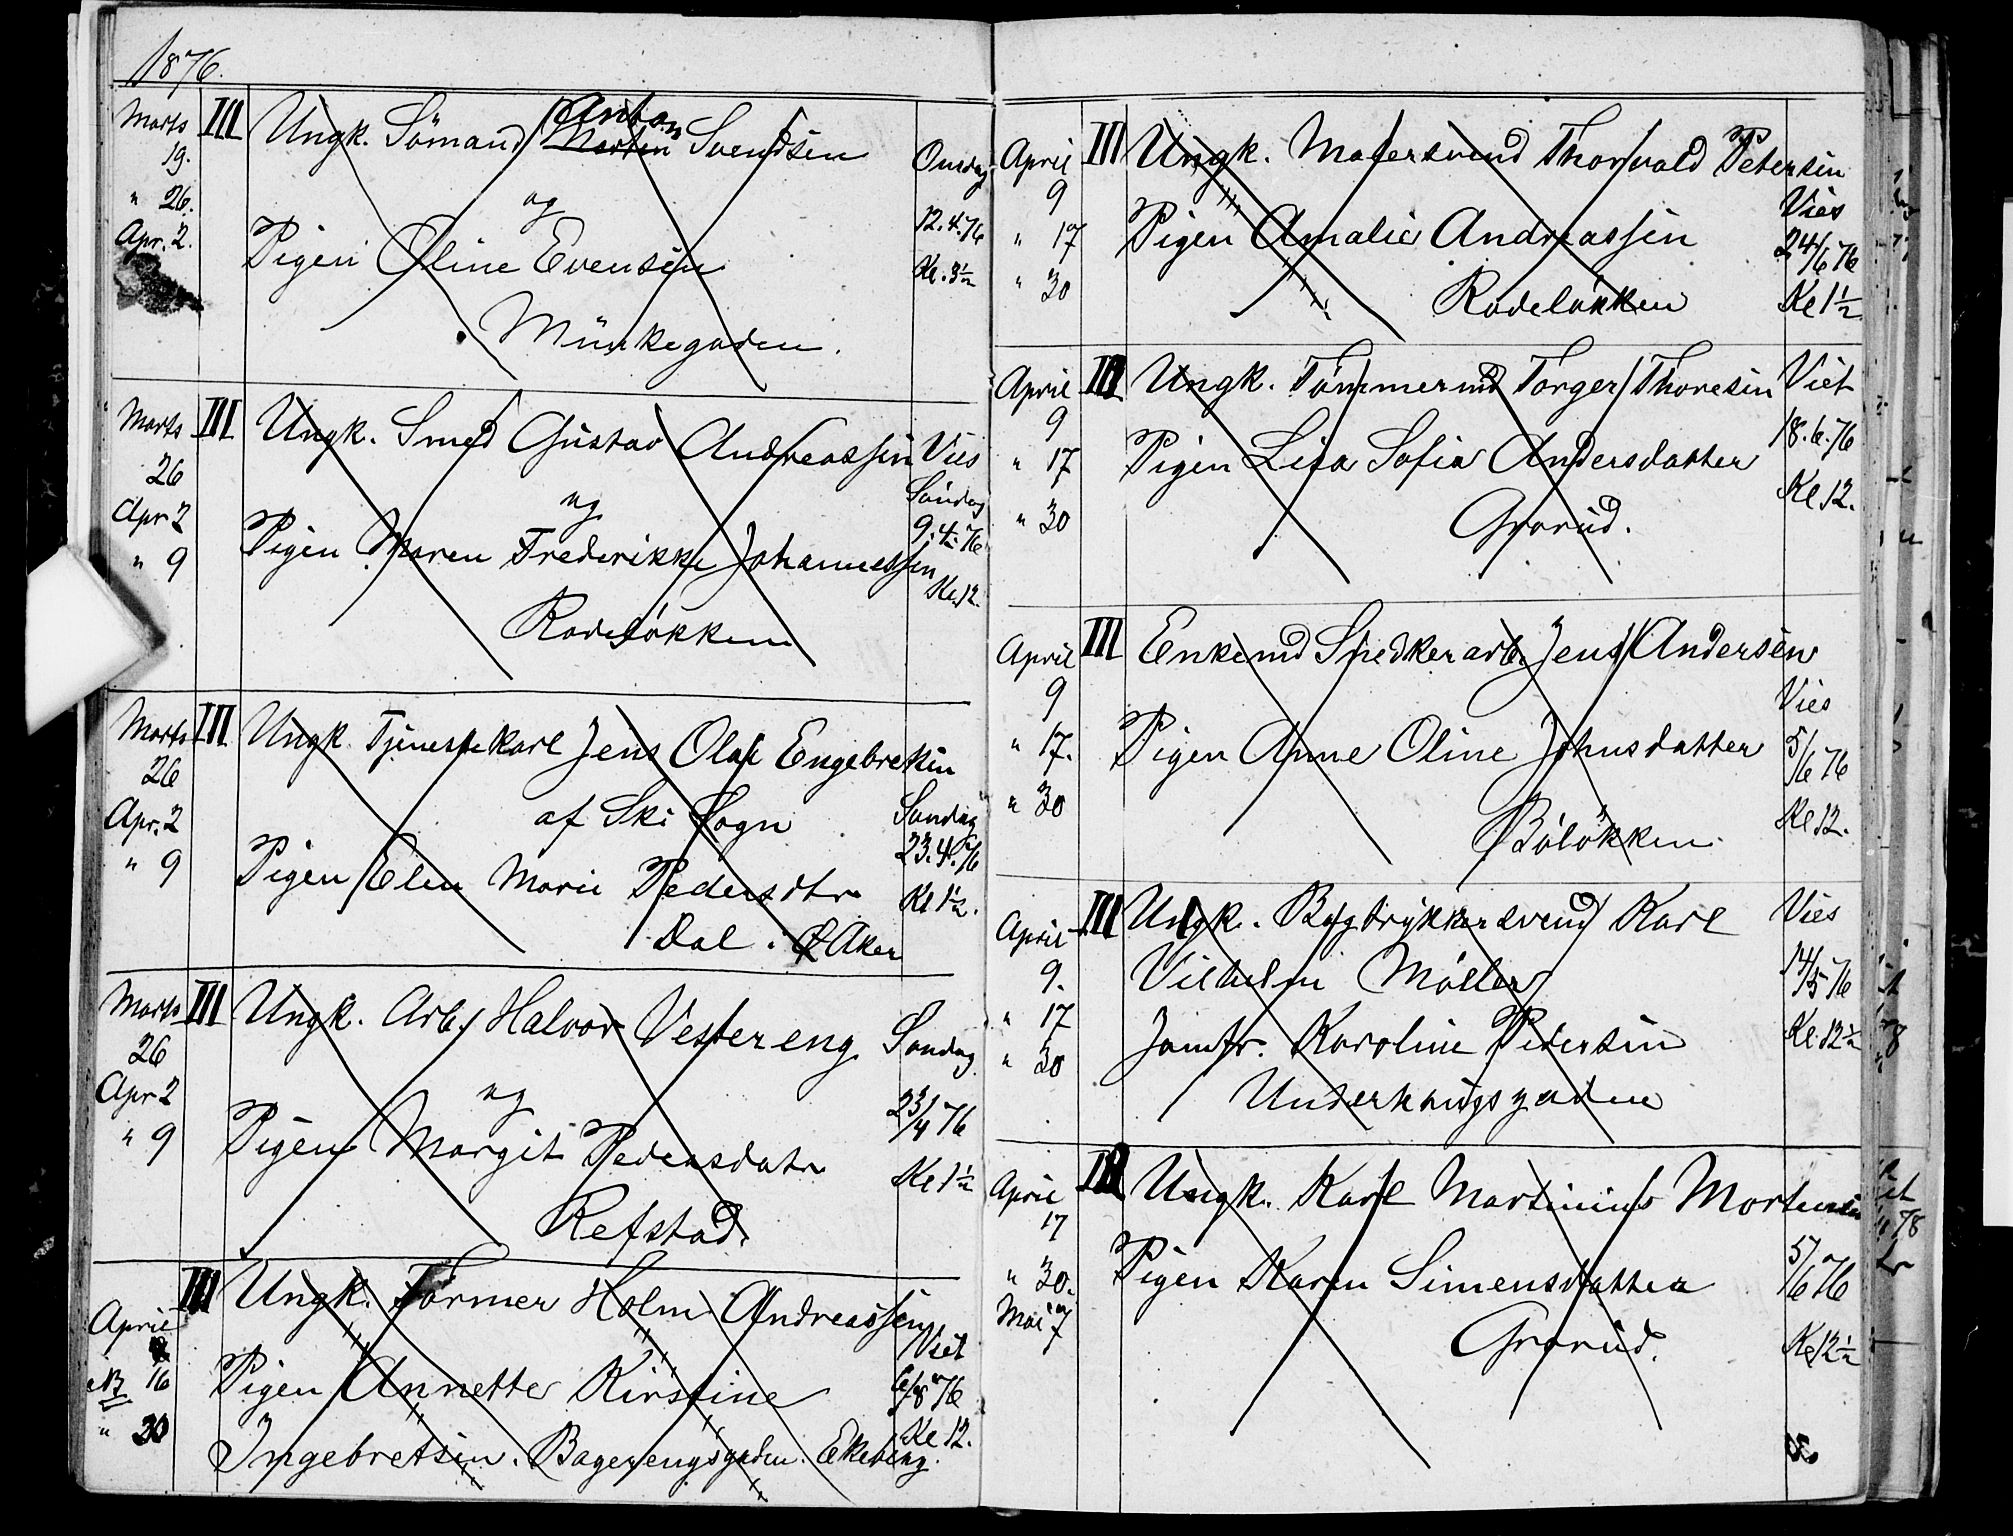 1876.
Marts III Ungk. Sömand Anton Svendsen
19. Morten
" 26. og Onsdag
Apr. 2. Pigen Oline Evensen 12.4.76
Kl. 3½
Münkegaden.
Marts III Ungk. Smed Gustav Andreassen Vies
26 og Söndag
Apr 2 Pigen Maren Frederikke Johannessen 9.4.76
" 9 Kl. 12.
Rodelökken
Marts III Ungk. Tjenestekarl Jens Olaf Engebretsen
26 af Ski Sogn Sondag
Apr. 2 23.4.76
" 9 Pigen Elen Marie Pedersdtr Kl 1½.
Dal. Ø Aker
Marts III Ungk. Arb. Halvor Vestereng Sondag
26 og
Apr 2 23/4 76
" 9 Pigen Margit Pedersdatr Kl 1½
Refstad
April III Ungk. Former Holm Andreassen
9 Viet
NB 16 Pigen Annette Kirstine 6/8 76
" 30 Kl 12.
Ingebretsen. Bagerengsgaden. Ekeberg.
April III Ungk. Malersvend Thorvald Petersen
9 Vies
" 17 Pigen Amalie Andreassen 24/6 76
" 30 Rodeløkken Kl 1½
April III Ungk. Tömmermd Torger Thoresen Viet
9 18.6.76
" 17 Pigen Lisa Sofia Andersdatter Kl 12.
" 30 Grorud.
April III Enkemd Snedkerarb. Jens Andersen
9 Vies
" 17. Pigen Anne Oline Johnsdatter 5/6 76
" 30 Kl 12.
Bölökken.
April III Ungk. Bogtrykkersvend Karl Vies
9. Vilhelm Möller 14/5 76
" 17 Jomfr. Karoline Petersen Kl. 12½
" 30
Underhaugsgaden
April III Ungk. Karl Martinius Mortensen
17
" 30. Pigen Karen Simensdatter 5/6 76
Mai 7 Grorud. Kl 12½